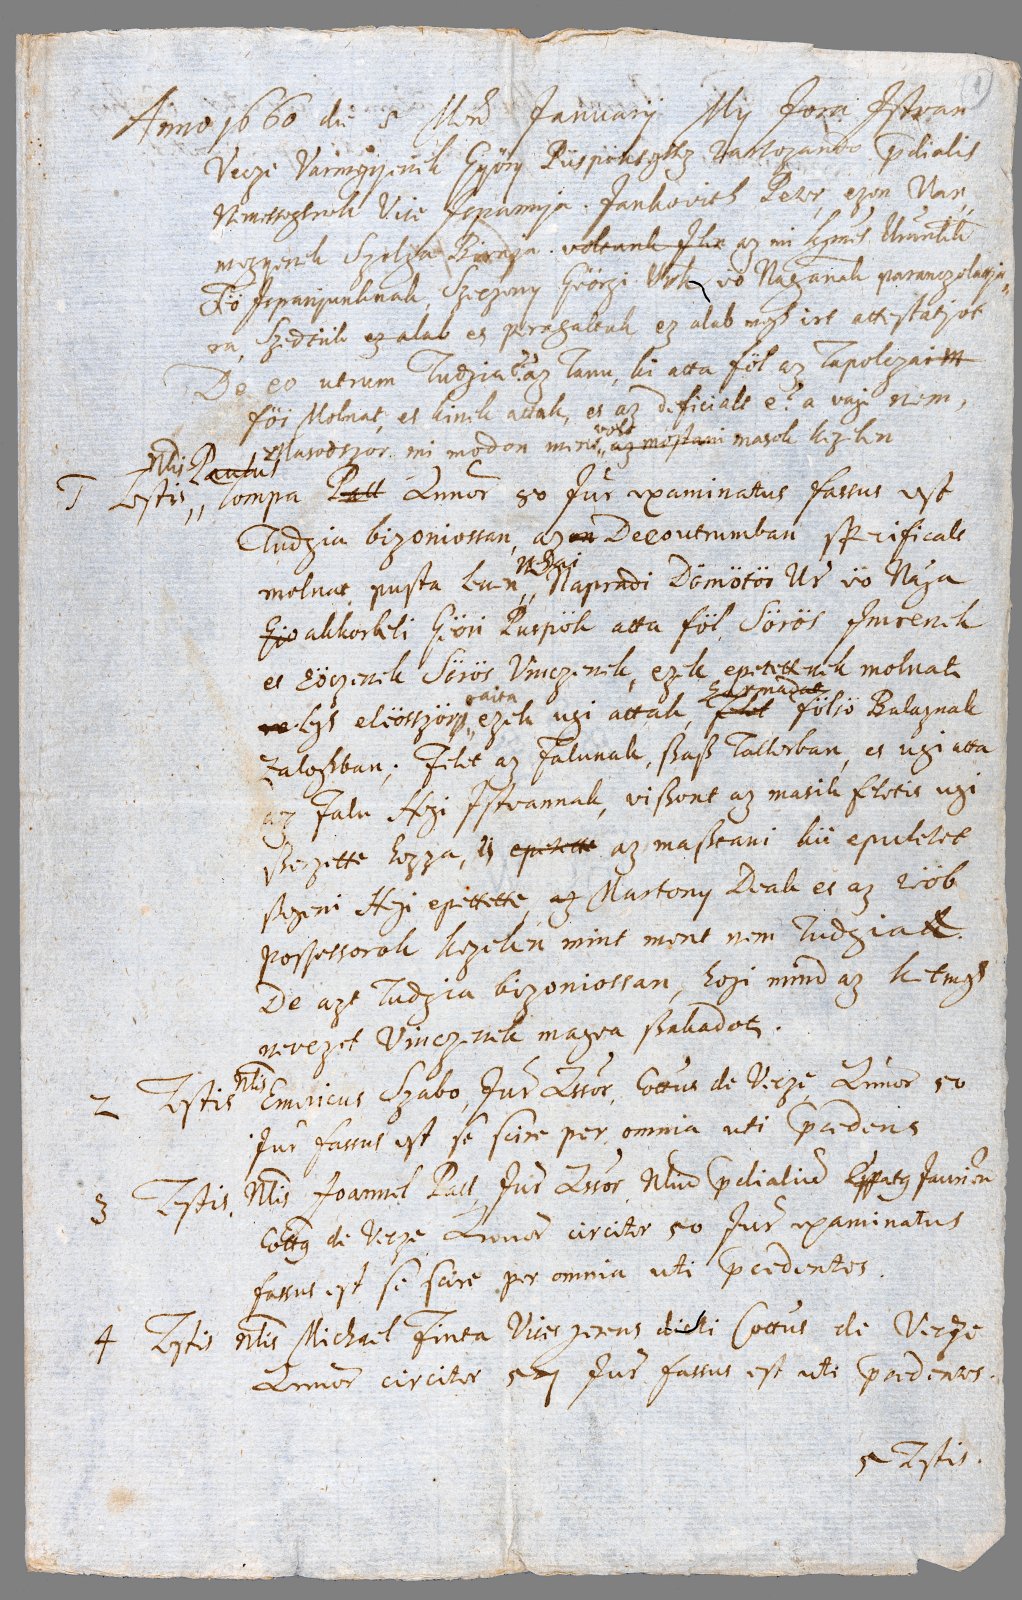 (1)
Anno 1660 die 5 Mens Januarij Mij Jora Istvan
Vecze Varmegyenek Győry Püspökseghez Tartozando pdialis
Nemessegknek Vice Ispannya. Jankovith Peter, ezen Var,
megyenek Szolga Biraja. voltank az mi kgmes Urunk
Fő Ispanyunknak, Szeczeny Geörgi Urk eö Naganak paranczolattya,,
ra, Szedtük ez alab es peragaltuk ez alab megh irt attestatiot
De eo utrum Tudgia é? az Tanu, ki atta föl az Tapolczai
föi Molnat, es kinek attak, es az deficialt é? a vagi nem,
Masodszor mi modon ment volt az mostani masok kezeben
1 Testis Nlis Paulus Tompa Patt Annor 80 Jur examinatus fassus est
Tudgia bizoniossan, azon Deeoutrumban specificalt
molnat pusta leven, Nehai Napradi Dömötör Ur eö Naga
akkorbeli Geöri Puspök atta föl Sörös Imrenek
es eöczenek Sörös Vinczenek, ezek epetettenek molnat
egs elcösször, ezek ugi attak, harmadat felet fölsö Balaznak
zalogban, Felet az Falunak, ßaß Tallerban, es ugi atta
az Falu Hegi Istvannak, vißont az masik feletis ugi
ßerzette hozza, epetette az maßtani kü epületet
ßegeni Hegi epittette, az Martony Deak es az teöb
possessorok kezeben mint ment nem Tudgia
De azt Tudgia bizoniossan, hogi mind az ket megh
nevezet Vinczenek magva ßakadot.
2 Testis Nlis Emericus Szabo, Jur Assor, Cottus de Vecze, Annor 50
Jur fassus est se scire per omnia uti praedens
3 Testis, Nlis Joannes Patt, Jur Assor Nlium pdialium Eppatq Jaurien
Cottq de Vecze Annor circiter 50 Jur examinatus
fassus est se scire per omnia uti praedentes.
4 Testis Nlis Michael Finta Vices gerens dicti Cottus de Vecze
Annor circiter 57 Jur fassus est uti praedentes.
5 Testis.